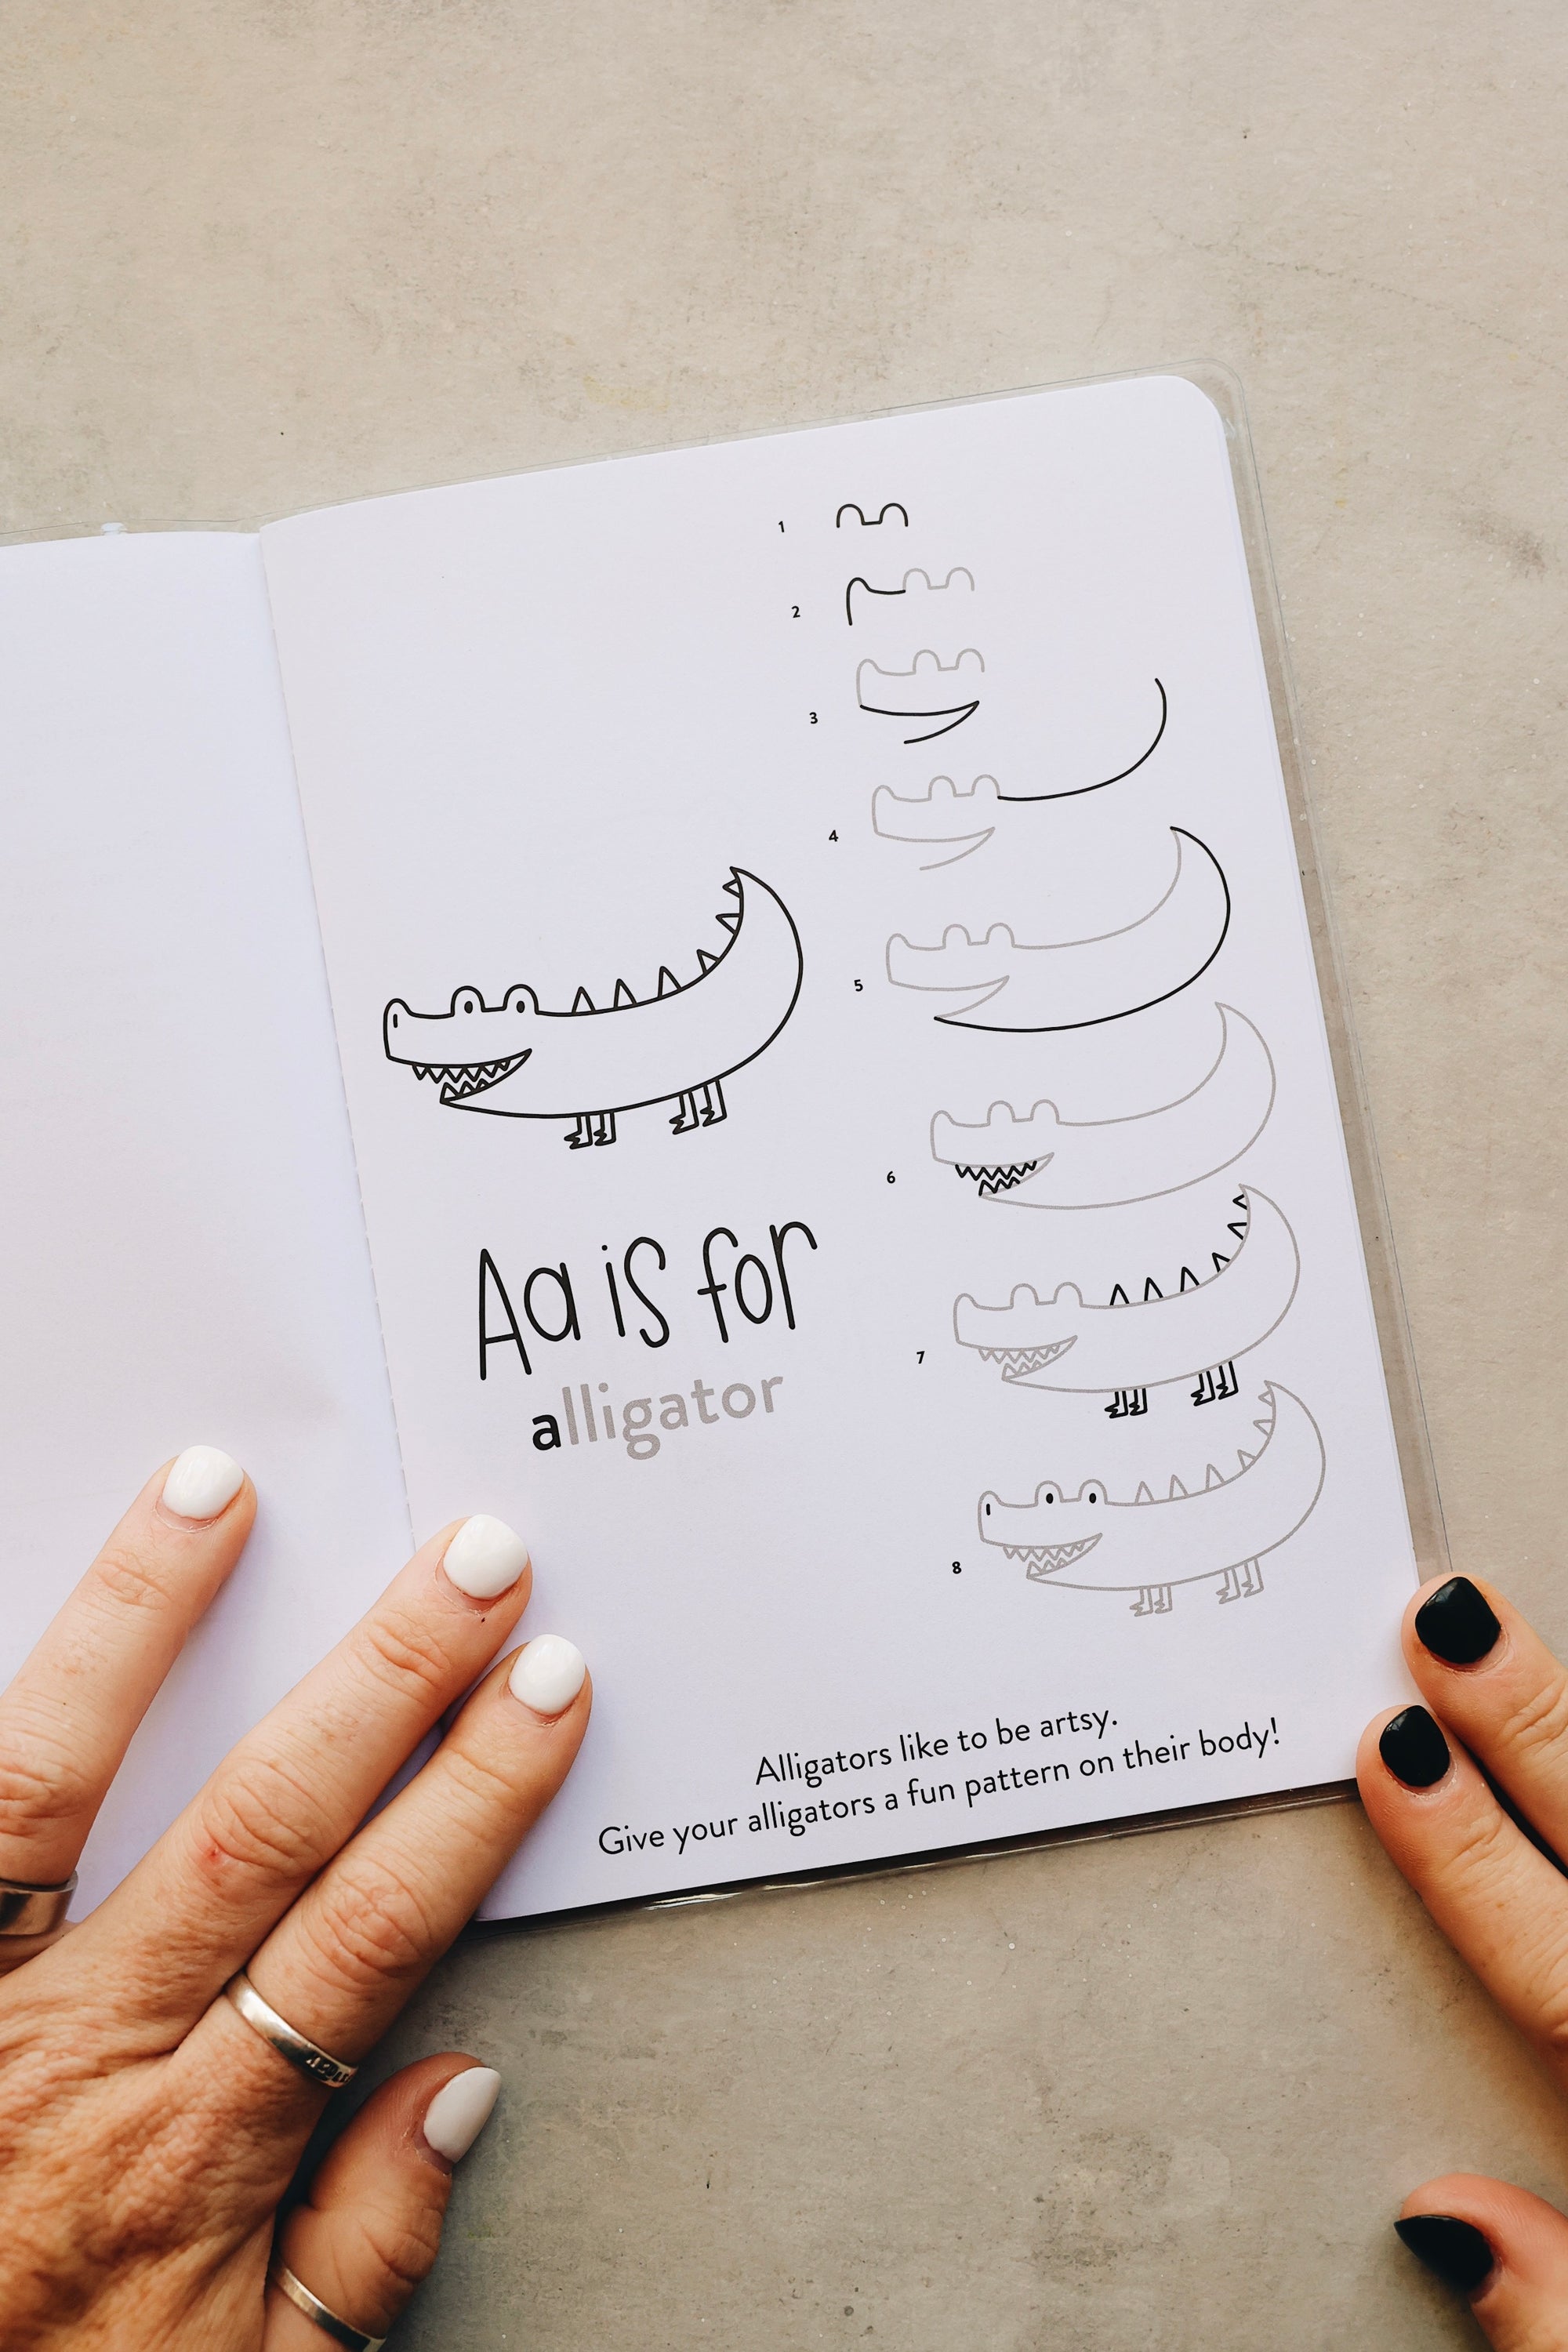 1
2
3
4
5
6
7
8
Aa is for
alligator
Alligators like to be artsy.
Give your alligators a fun pattern on their body!